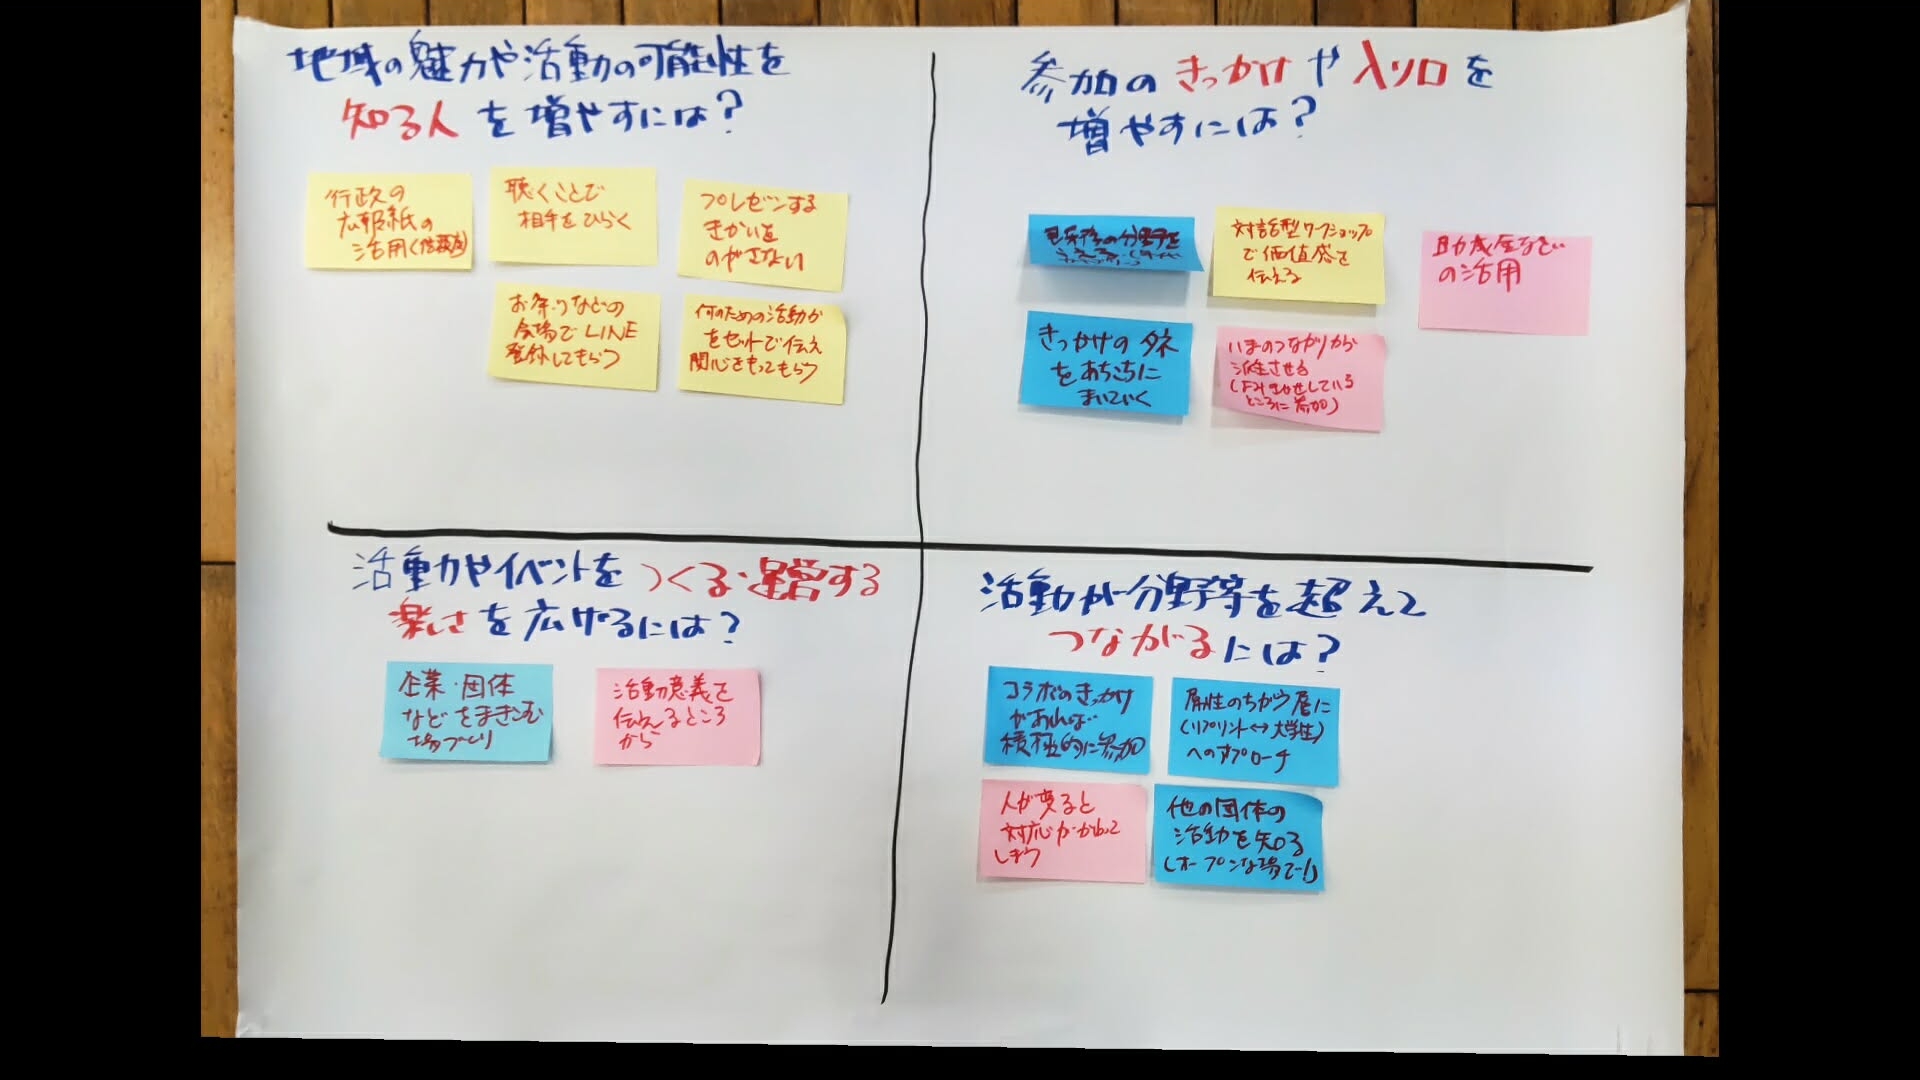 地域の魅力や活動の可能性を
知る人を増やすには?
行政の
広報紙の
活用(信頼度)
聴くことで
相手をひらく
プレゼンする
きかいを
のがさない
お祭りなどの
会場でLINE
登録してもらう
何のための活動か
をセットで伝え
関心をもってもらう
参加のきっかけや入り口を
増やすには?
対話型ワークショップ
で価値感を
伝える
助成金などの
の活用
きっかけのタネ
をあちこちに
まいていく
いまのつながりから
派生させる
ところに参加)
活動やイベントをつくる・運営する
楽しさを広げるには?
企業・団体
などをまきこむ
場づくり
活動意義を
伝えるところ
から
活動が分野等を超えて
つながるには?
コラボのきっかけ
があれば
積極的に参加
属性のちがう層に
(リプリント↔大学生)
へのアプローチ
人が変ると
対応がかわって
しまう
他の団体の
活動を知る
(オープンな場で!)